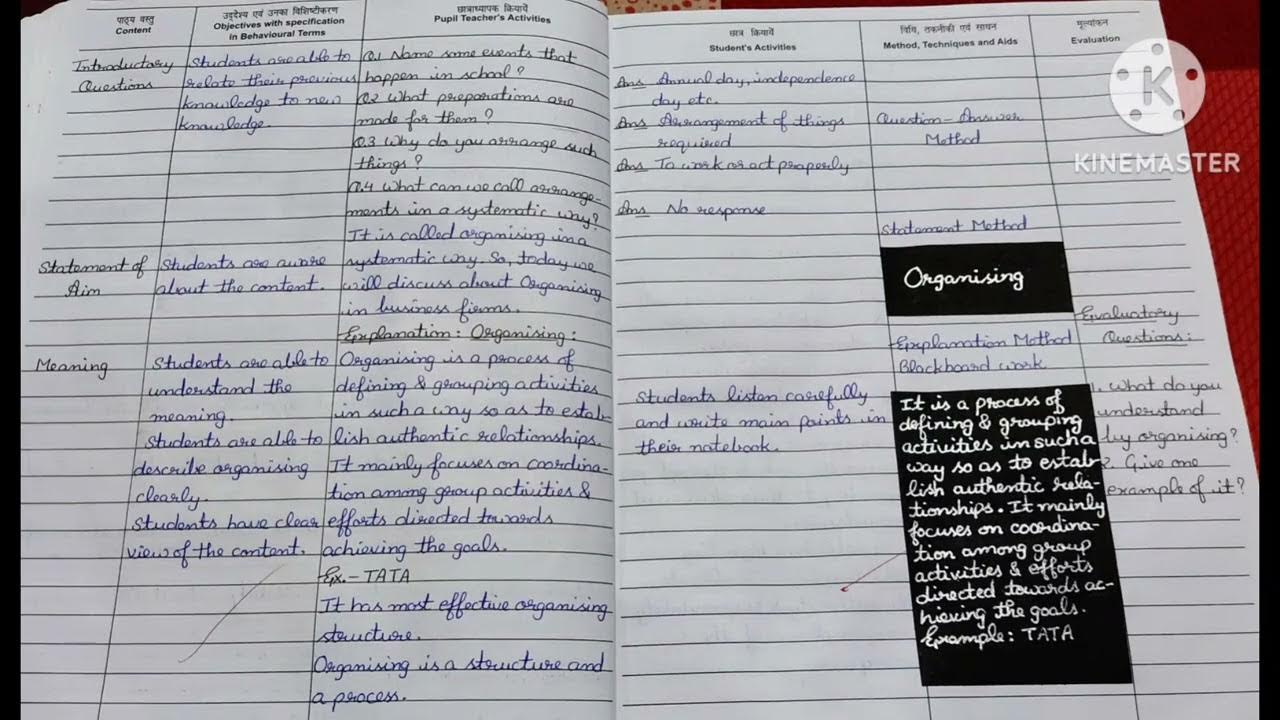 पाठ्य वस्तु
Content
उद्देश्य एवं उनका विशिष्टीकरण
Objectives with specification
in Behavioural Terms
छात्राध्यापक क्रियायें
Pupil Teacher's Activities
छात्र क्रियायें
Student's Activities
विधि, तकनीकी एवं साधन
Method, Techniques and Aids
मूल्यांकन
Evaluation
Introductory
Questions
Students are able to
relate their previous
knowledge to new
knowledge.
Q.1 Name some events that
happen in school?
Q.2 What preparations are
made for them?
Q.3 Why do you arrange such
things?
Q.4 What can we call arrange-
ments in a systematic way?
It is called organising in a
systematic way. So, today we
will discuss about Organising
in business firms.
Statement of
Aim
Students are aware
about the content.
Explanation: Organising:
Meaning
Students are able to
understand the
meaning.
Students are able to
describe organising
clearly.
Students have clear
view of the content.
Organising is a process of
defining & grouping activities
in such a way so as to estab-
lish authentic relationships.
It mainly focuses on coordina-
tion among group activities &
efforts directed towards
achieving the goals.
Ex.- TATA
It has most effective organising
structure.
Organising is a structure and
a process.
Ans Annual day, independence
day etc.
Ans Arrangement of things
required
Ans To work or act properly
Ans No response
Students listen carefully
and write main points in
their notebook.
Question-Answer
Method
Statement Method
Organising
Explanation Method
Blackboard work
It is a process of
defining & grouping
activities in such a
way so as to estab-
lish authentic rela-
tionships. It mainly
focuses on coordina-
tion among group
activities & efforts
directed towards ac-
hieving the goals.
Example: TATA
Evaluatory
Questions:
1. What do you
understand
by organising?
2. Give one
example of it?
K
KINEMASTER